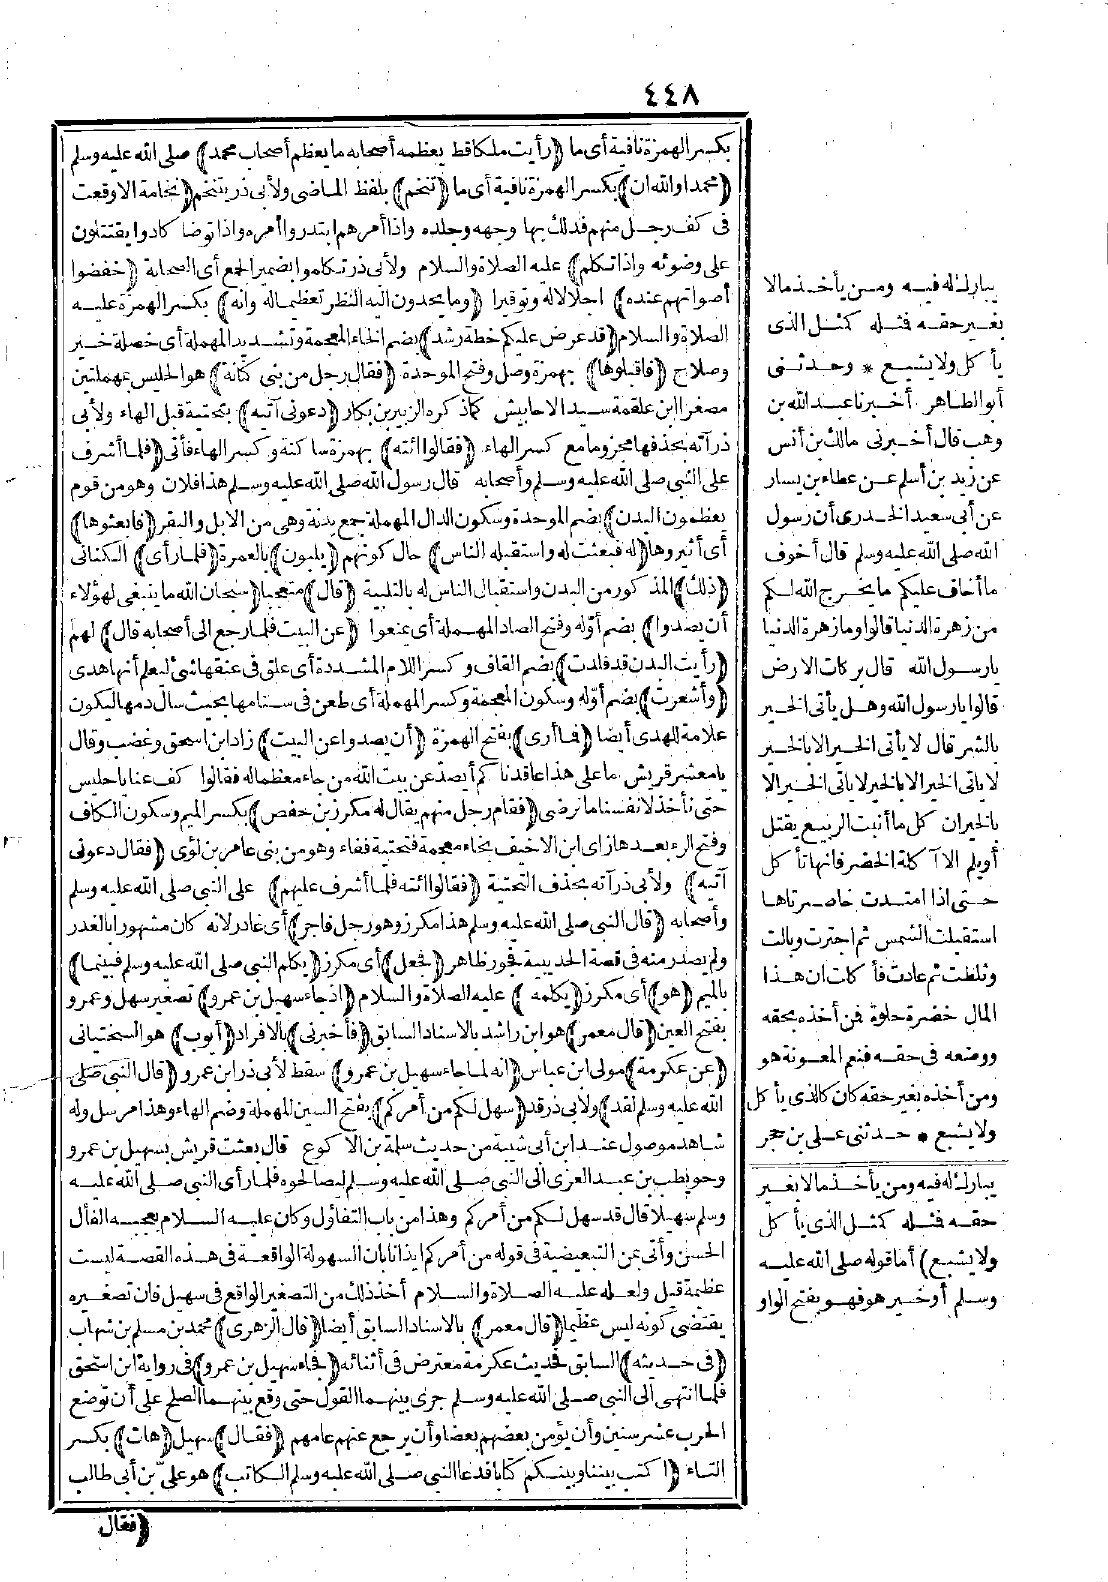 ٤٤٨
بكسر الهمزة نافية أى ما (رأيت ملكا قط يعظمه أصحابه ما يعظم أصحاب محمد) صلى الله عليه وسلم
(محمدا والله ان) بكسر الهمزة نافية أى ما (تنخم) بلفظ الماضى ولأبى ذر يتنخم (نخامة الا وقعت
فى كف رجل منهم فدلك بها وجهه وجلده واذا أمرهم ابتدروا أمره واذا توضا كادوا يقتتلون
على وضوئه واذا تكلم) عليه الصلاة والسلام ولأبى ذر تكلموا بضمير الجمع أى الصحابة (خفضوا
أصواتهم عنده) اجلالا له وتوقيرا (وما يحدون اليه النظر تعظيما له وانه) بكسر الهمزة عليه
الصلاة والسلام (قد عرض عليكم خطة رشد) بضم الخاء المعجمة وتشديد المهملة أى خصلة خير
وصلاح (فاقبلوها) بهمزة وصل وفتح الموحدة (فقال رجل من بنى كنانة) هو الحليس بمهملتين
مصغرا ابن علقمة سيد الاحابيش كما ذكره الزبير بن بكار (دعونى آتيه) بتحتية قبل الهاء ولأبى
ذر آته بحذفها مجزوما مع كسر الهاء (فقالوا ائته) بهمزة ساكنة وكسر الهاء فأتى (فلما أشرف
على النبى صلى الله عليه وسلم وأصحابه قال رسول الله صلى الله عليه وسلم هذا فلان وهو من قوم
يعظمون البدن) بضم الموحدة وسكون الدال المهملة جمع بدنة وهى من الابل والبقر (فابعثوها)
أى أثيروها (له فبعثت له واستقبله الناس) حال كونهم (يلبون) بالعمرة (فلما رأى) الكنانى
(ذلك) المذكور من البدن واستقبال الناس له بالتلبية (قال) متعجبا (سبحان الله ما ينبغى لهؤلاء
أن يصدوا) بضم أوله وفتح الصاد المهملة أى يمنعوا (عن البيت فلما رجع الى أصحابه قال) لهم
(رأيت البدن قد قلدت) بضم القاف وكسر اللام المشددة أى علق فى عنقها شئ ليعلم أنها هدى
(وأشعرت) بضم أوله وسكون المعجمة وكسر المهملة أى طعن فى سنامها بحيث سال دمها ليكون
علامة للهدى أيضا (فما أرى) بفتح الهمزة (أن يصدوا عن البيت) زاد ابن اسحق وغضب وقال
يا معشر قريش ما على هذا عاقدناكم أيصد عن بيت الله من جاء معظما له فقالوا كف عنا يا حليس
حتى نأخذ لانفسنا ما نرضى (فقام رجل منهم يقال له مكرز بن حفص) بكسر الميم وسكون الكاف
وفتح الراء بعدها زاى ابن الاخيف بخاء معجمة فتحتية ففاء وهو من بنى عامر بن لؤى (فقال دعونى
آتيه) ولأبى ذر آته بحذف التحتية (فقالوا ائته فلما أشرف عليهم) على النبى صلى الله عليه وسلم
وأصحابه (قال النبى صلى الله عليه وسلم هذا مكرز وهو رجل فاجر) أى غادر لانه كان مشهورا بالغدر
ولم يصدر منه فى قصة الحديبية فجور ظاهر (فجعل) أى مكرز (يكلم النبى صلى الله عليه وسلم فبينما)
بالميم (هو) أى مكرز (يكلمه) عليه الصلاة والسلام (اذ جاء سهيل بن عمرو) تصغير سهل وعمرو
بفتح العين (قال معمر) هو ابن راشد بالاسناد السابق (فأخبرنى) بالافراد (أيوب) هو السختيانى
(عن عكرمة) مولى ابن عباس (انه لما جاء سهيل بن عمرو) سقط لأبى ذر ابن عمرو (قال النبى صلى
الله عليه وسلم لقد) ولابى ذر قد (سهل لكم من أمركم) بفتح السين المهملة وضم الهاء وهذا مرسل وله
شاهد موصول عند ابن أبى شيبة من حديث سلمة بن الاكوع قال بعثت قريش بسهيل بن عمرو
وحويطب بن عبد العزى الى النبى صلى الله عليه وسلم ليصالحوه فلما رأى النبى صلى الله عليه
وسلم سهيلا قال قد سهل لكم من أمركم وهذا من باب التفاؤل وكان عليه السلام يعجبه الفأل
الحسن وأتى بمن التبعيضية فى قوله من أمركم ايذانا بان السهولة الواقعة فى هذه القصة ليست
عظيمة قيل ولعله عليه الصلاة والسلام أخذ ذلك من التصغير الواقع فى سهيل فان تصغيره
يقتضى كونه ليس عظيما (قال معمر) بالاسناد السابق أيضا (قال الزهرى) محمد بن مسلم بن شهاب
(فى حديثه) السابق فحديث عكرمة معترض فى أثنائه (فجاء سهيل بن عمرو) فى رواية ابن اسحق
فلما انتهى الى النبى صلى الله عليه وسلم جرى بينهما القول حتى وقع بينهما الصلح على أن توضع
الحرب عشر سنين وأن يؤمن بعضهم بعضا وأن يرجع عنهم عامهم (فقال) سهيل (هات) بكسر
التاء (اكتب بيننا وبينكم كتابا فدعا النبى صلى الله عليه وسلم الكاتب) هو على بن أبى طالب
(فقال
يبارك له فيه ومن يأخذ مالا
بغير حقه فمثله كمثل الذى
يأكل ولا يشبع * وحدثنى
أبو الطاهر أخبرنا عبد الله بن
وهب قال أخبرنى مالك بن أنس
عن زيد بن أسلم عن عطاء بن يسار
عن أبى سعيد الخدرى أن رسول
الله صلى الله عليه وسلم قال أخوف
ما أخاف عليكم ما يخرج الله لكم
من زهرة الدنيا قالوا وما زهرة الدنيا
يا رسول الله قال بركات الارض
قالوا يا رسول الله وهل يأتى الخير
بالشر قال لا يأتى الخير الا بالخير
لا يأتى الخير الا بالخير لا يأتى الخير الا
بالخير ان كل ما أنبت الربيع يقتل
أو يلم الا آكلة الخضر فانها تأكل
حتى اذا امتدت خاصرتاها
استقبلت الشمس ثم اجترت وبالت
وثلطت ثم عادت فأكلت ان هذا
المال خضرة حلوة فمن أخذه بحقه
ووضعه فى حقه فنعم المعونة هو
ومن أخذه بغير حقه كان كالذى يأكل
ولا يشبع * حدثنى على بن حجر
يبارك له فيه ومن يأخذ مالا بغير
حقه فمثله كمثل الذى يأكل
ولا يشبع) أما قوله صلى الله عليه
وسلم أو خير هو فهو بفتح الواو